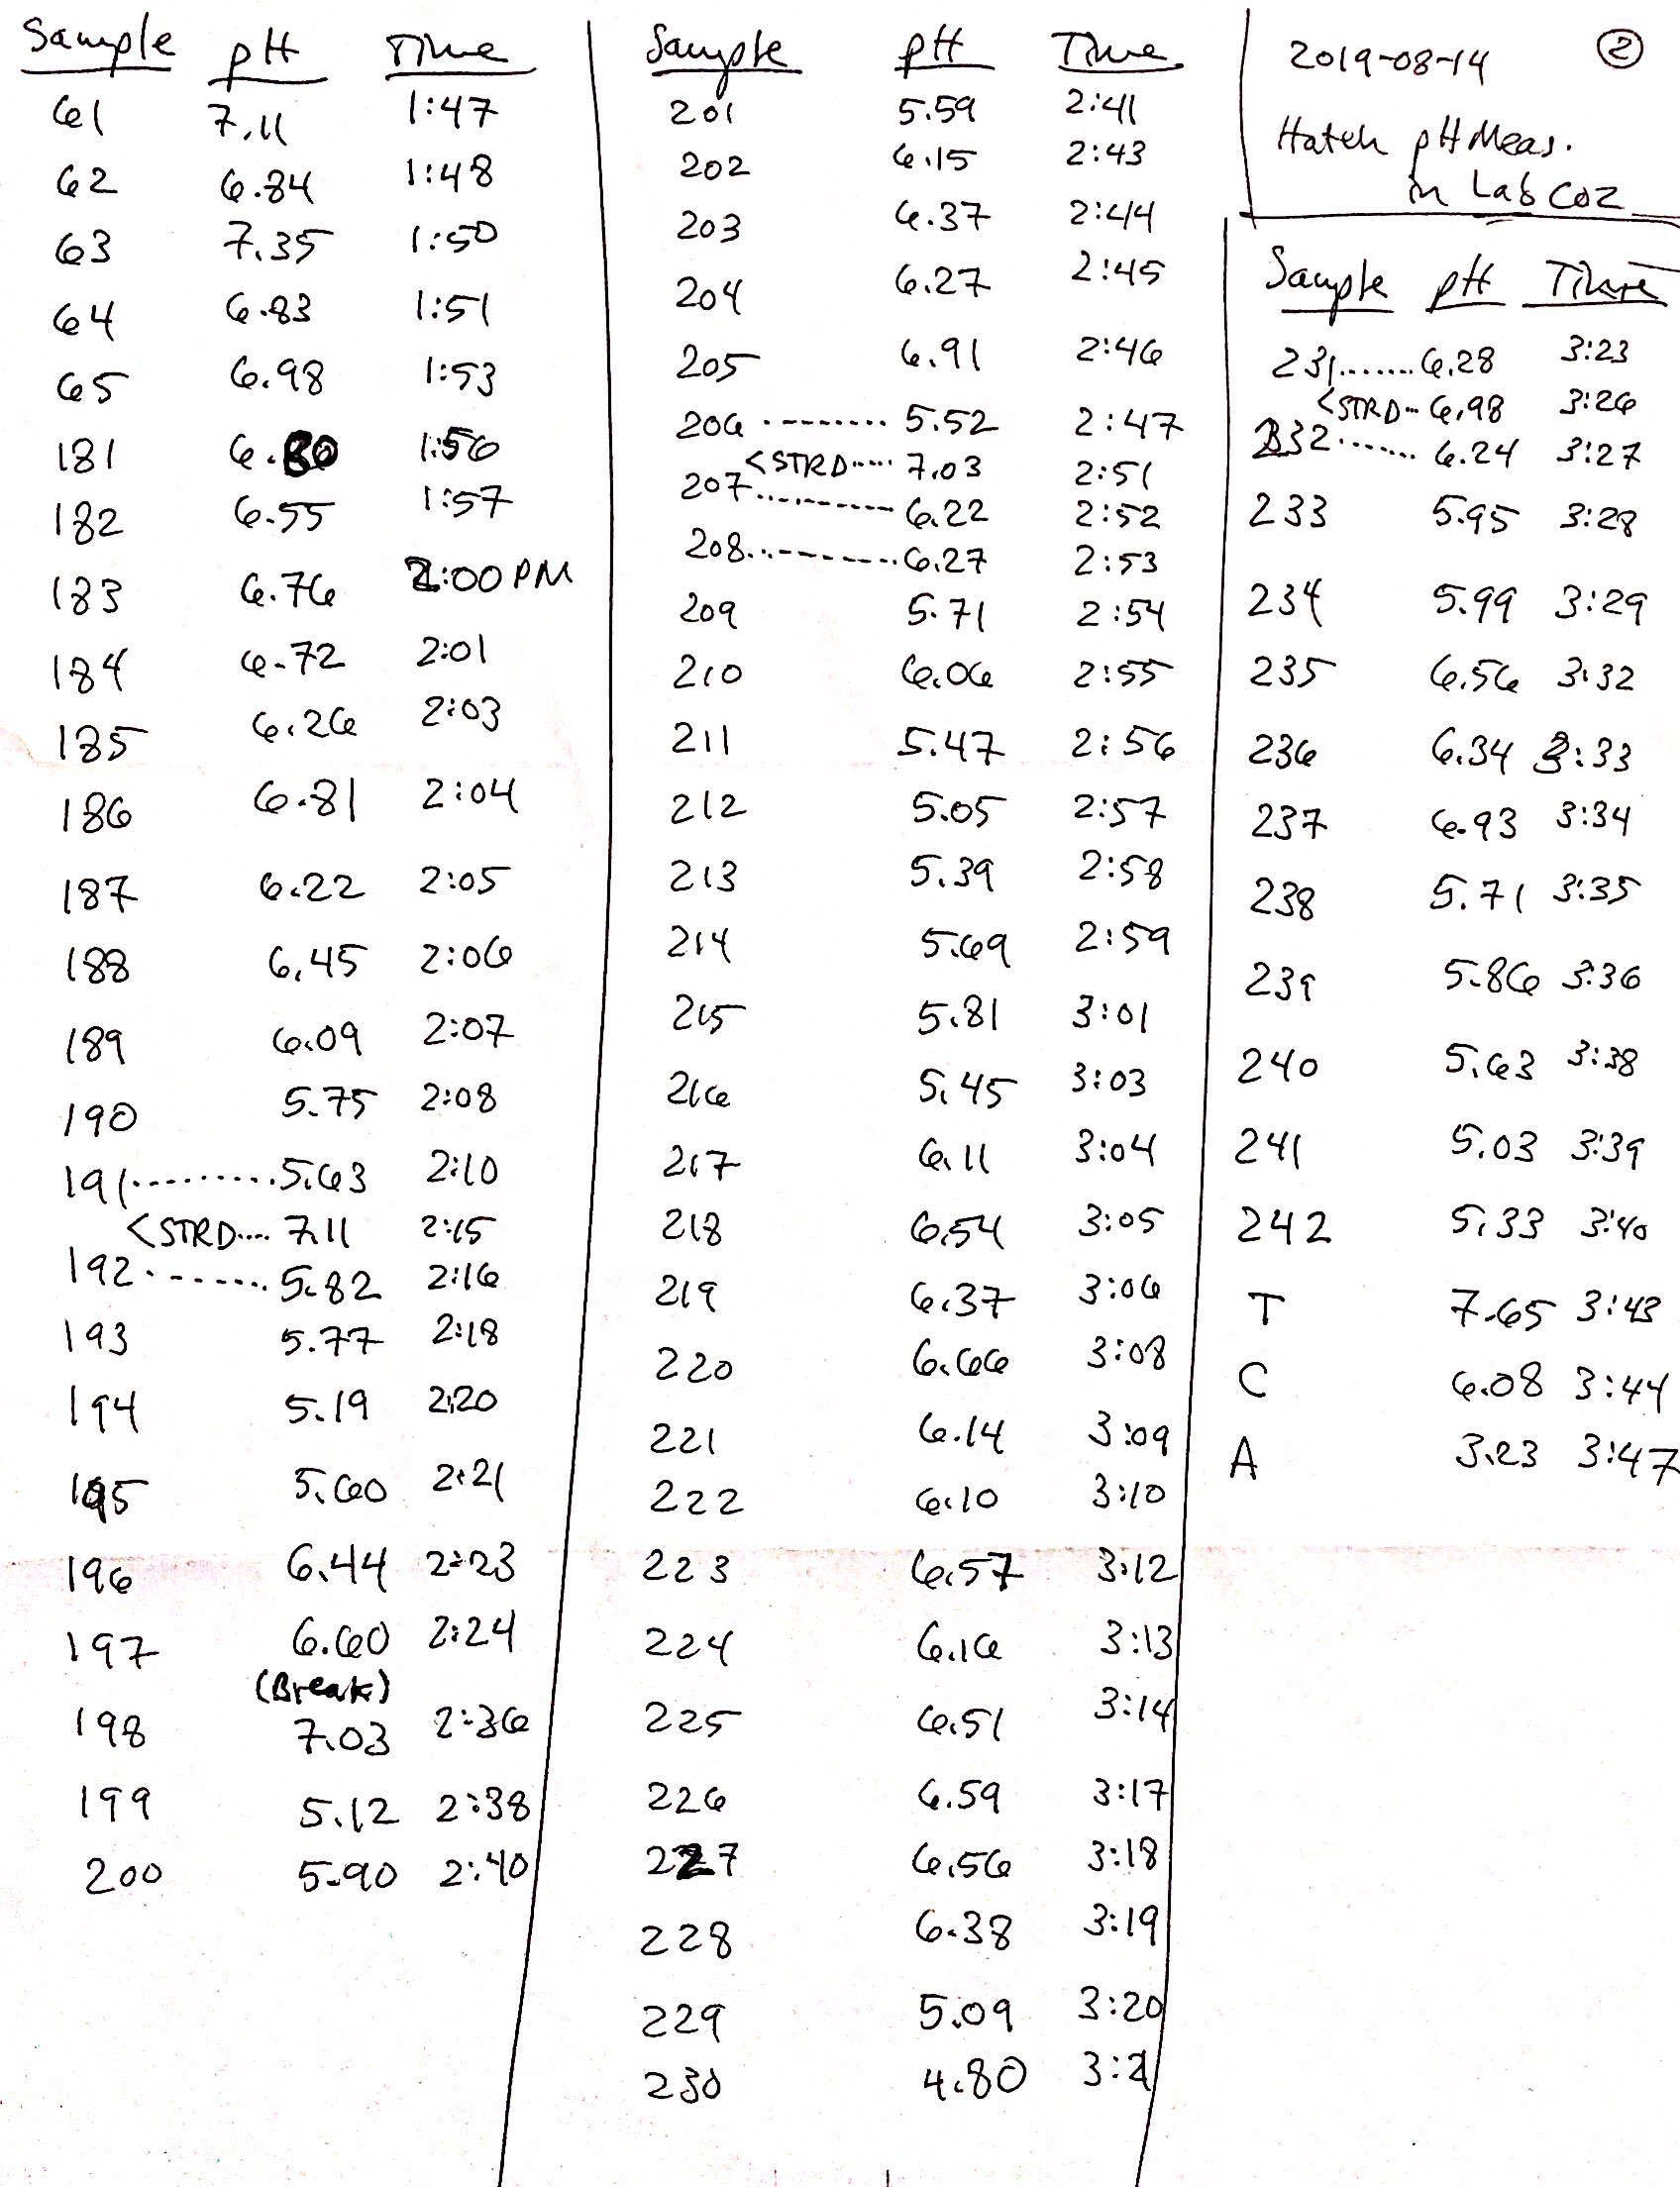 Sample pH Time
61 7.11 1:47
62 6.84 1:48
63 7.35 1:50
64 6.83 1:51
65 6.98 1:53
181 6.80 1:56
182 6.55 1:57
183 6.76 2:00 PM
184 6.72 2:01
185 6.26 2:03
186 6.81 2:04
187 6.22 2:05
188 6.45 2:06
189 6.09 2:07
190 5.75 2:08
191.........5.63 2:10
<STRD.... 7.11 2:15
192.......5.82 2:16
193 5.77 2:18
194 5.19 2:20
195 5.60 2:21
196 6.44 2:23
197 6.60 2:24
(Break)
198 7.03 2:36
199 5.12 2:38
200 5.90 2:40
Sample pH Time
201 5.59 2:41
202 6.15 2:43
203 6.37 2:44
204 6.27 2:45
205 6.91 2:46
206 ........ 5.52 2:47
<STRD..... 7.03 2:51
207.......... 6.22 2:52
208..........6.27 2:53
209 5.71 2:54
210 6.06 2:55
211 5.47 2:56
212 5.05 2:57
213 5.39 2:58
214 5.69 2:59
215 5.81 3:01
216 5.45 3:03
217 6.11 3:04
218 6.54 3:05
219 6.37 3:06
220 6.66 3:08
221 6.14 3:09
222 6.10 3:10
223 6.57 3:12
224 6.16 3:13
225 6.51 3:14
226 6.59 3:17
227 6.56 3:18
228 6.38 3:19
229 5.09 3:20
230 4.80 3:21
2019-08-14 ②
Hatch pH Meas.
in Lab CO2
Sample pH Time
231.......6.28 3:23
<STRD... 6.98 3:26
232....... 6.24 3:27
233 5.95 3:28
234 5.99 3:29
235 6.56 3:32
236 6.34 3:33
237 6.93 3:34
238 5.71 3:35
239 5.86 3:36
240 5.63 3:38
241 5.03 3:39
242 5.33 3:40
T 7.65 3:43
C 6.08 3:44
A 3.23 3:47